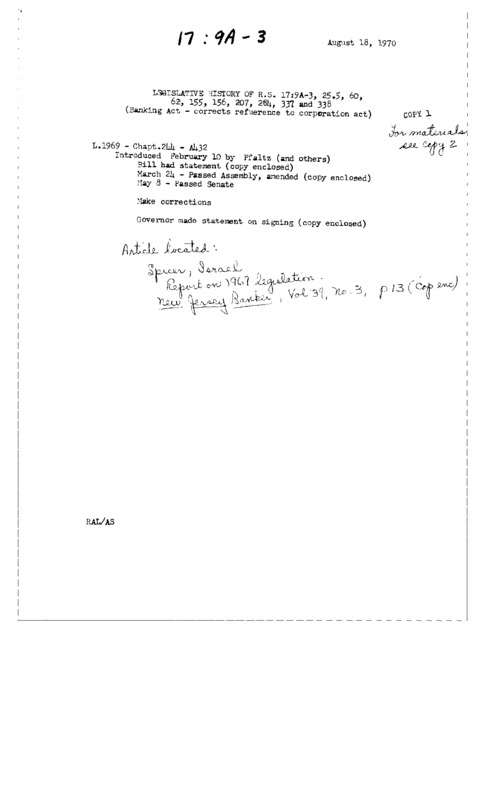 17 : 9A - 3
August 18, 1970
LEGISLATIVE HISTORY OF R.S. 17:9A-3, 25.5, 60,
62, 155, 156, 207, 284, 337 and 338
(Banking Act - corrects refuerence to corporation act)
COPY 1
For materials
see copy 2
L.1969 - Chapt.244 - A432
Introduced February 10 by Pfaltz (and others)
Bill had statement (copy enclosed)
March 24 - Passed Assembly, amended (copy enclosed)
May 8 - Passed Senate
Make corrections
Governor made statement on signing (copy enclosed)
Article located :
Spicer, Israel
Report on 1969 legislation.
New Jersey Banker, Vol 39, No. 3, p 13 (Cop enc)
RAL/AS